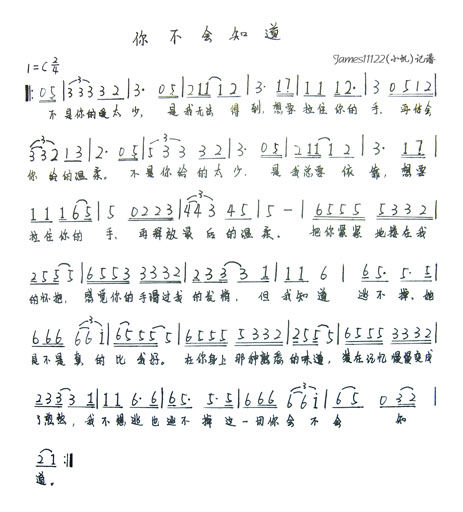 你不会知道
James11122(小帆)记谱
1=C 2/4
‖: 0 5 | 3 3 3 3 2 | 3 · 0 5 | 2 1 1 1 2 | 3 · 1 7 | 1 1 1 2 | 1 1 1 2 · | 0 5 |
不是你的爱太少, 是我无法得到,想要拉住你的手,再体会
3 3 2 1 3 | 2 · 0 5 | 5 3 3 3 2 | 3 · 0 5 | 2 1 1 1 2 | 3 · 1 7 |
你给的温柔。不是你给的太少,是我总要依靠,想要
1 1 1 6 5 | 5 0 2 2 3 | 4 4 3 4 5 | 5 – | 6 5 5 5 5 3 3 2 |
拉住你的手,再释放最后的温柔。把你紧紧地搂在我
2 5 5 5 | 6 5 5 3 3 3 3 2 | 2 3 3 3 1 | 1 1 6 | 6 5 · 5 · 5 |
的怀抱,感觉你的手滑过我的发梢,但我知道 逃不掉,她
6 6 6 6 6 i | 6 5 5 5 5 | 6 5 5 5 5 3 3 2 | 2 5 5 5 | 6 5 5 5 3 3 3 2 |
是不是真的比我好。在你身上那种熟悉的味道,
2 3 3 3 1 | 1 1 6 · 6 | 6 5 · 5 · 5 | 6 6 6 6 6 i | 6 5 0 3 2 |
我不想逃也逃不掉这一切你会不会 知
2 1 :‖
道。